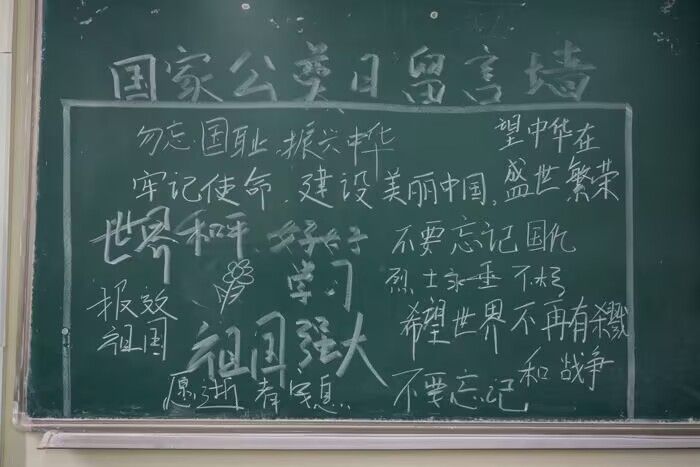 国家公奠日留言墙
勿忘国耻 振兴中华
望中华在
盛世繁荣
牢记使命，建设美丽中国，
世界和平
好好
学习
不要忘记国仇
烈士永垂不朽
报效
祖国
祖国强大
希望世界不再有杀戮
和战争
愿逝者安息
不要忘记